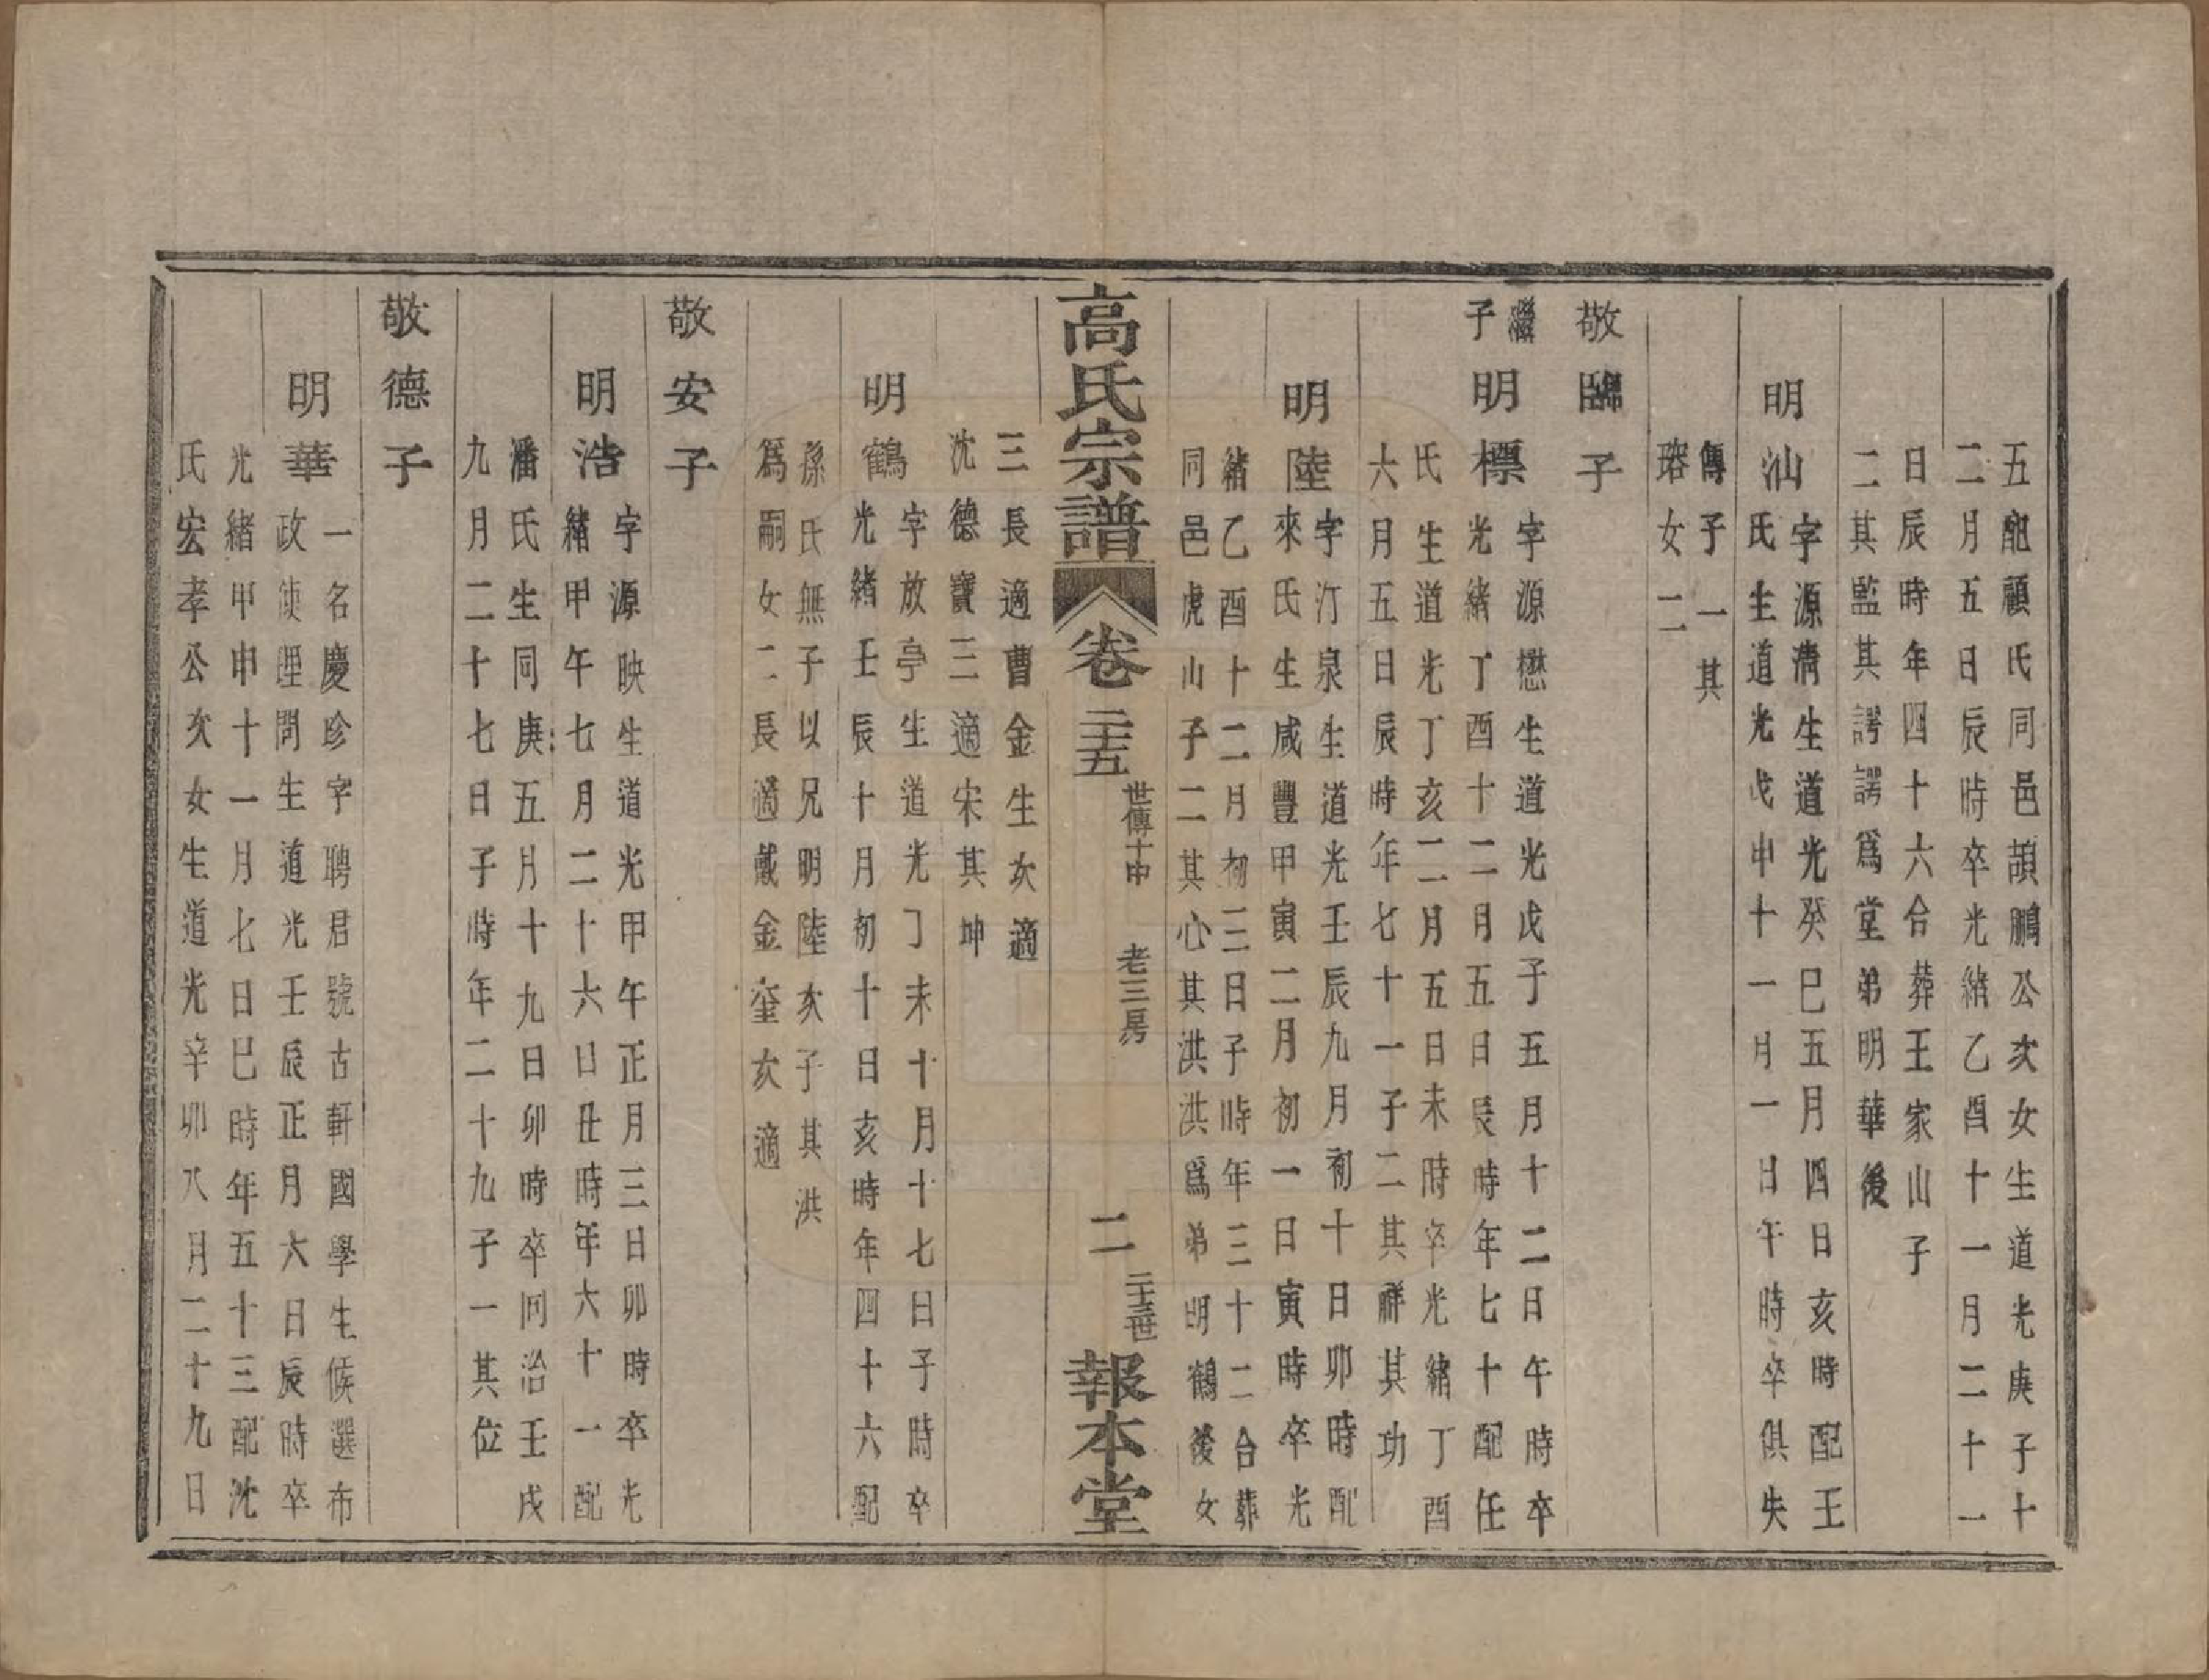 五配顧氏同邑頡鵬公次女生道光庚子十
二月五日辰時卒光緒乙酉十一月二十一
日辰時年四十六合葬王家山子
二其監其諤諤爲堂弟明華後
明汕
字源淸生道光癸巳五月四日亥時配王
氏生道光戊申十一月一日午時卒俱失
傳子一其
瑢女二
敬歸子
繼子
明標
字源懋生道光戊子五月十二日午時卒
光緒丁酉十二月五日辰時年七十配任
氏生道光丁亥二月五日未時卒光緒丁酉
六月五日辰時年七十一子二其祥其功
明陸
字汀泉生道光壬辰九月初十日卯時配
來氏生咸豐甲寅二月初一日寅時卒光
緒乙酉十二月初三日子時年三十二合葬
同邑虎山子二其心其洪洪爲弟明鶴後女
高氏宗譜
卷二十五
世傳十中 老三房
二
二十三世
報本堂
三長適曹金生次適
沈德寶三適宋其坤
明鶴
字放亭生道光丁未十月十七日子時卒
光緒壬辰十月初十日亥時年四十六配
孫氏無子以兄明陸次子其洪
爲嗣女二長適戴金奎次適
敬安子
明浩
字源映生道光甲午正月三日卯時卒光
緒甲午七月二十六日丑時年六十一配
潘氏生同庚五月十九日卯時卒同治壬戌
九月二十七日子時年二十九子一其位
敬德子
明華
一名慶珍字聘君號古軒國學生候選布
政使理問生道光壬辰正月六日辰時卒
光緒甲申十一月七日巳時年五十三配沈
氏宏孝公次女生道光辛卯八月二十九日